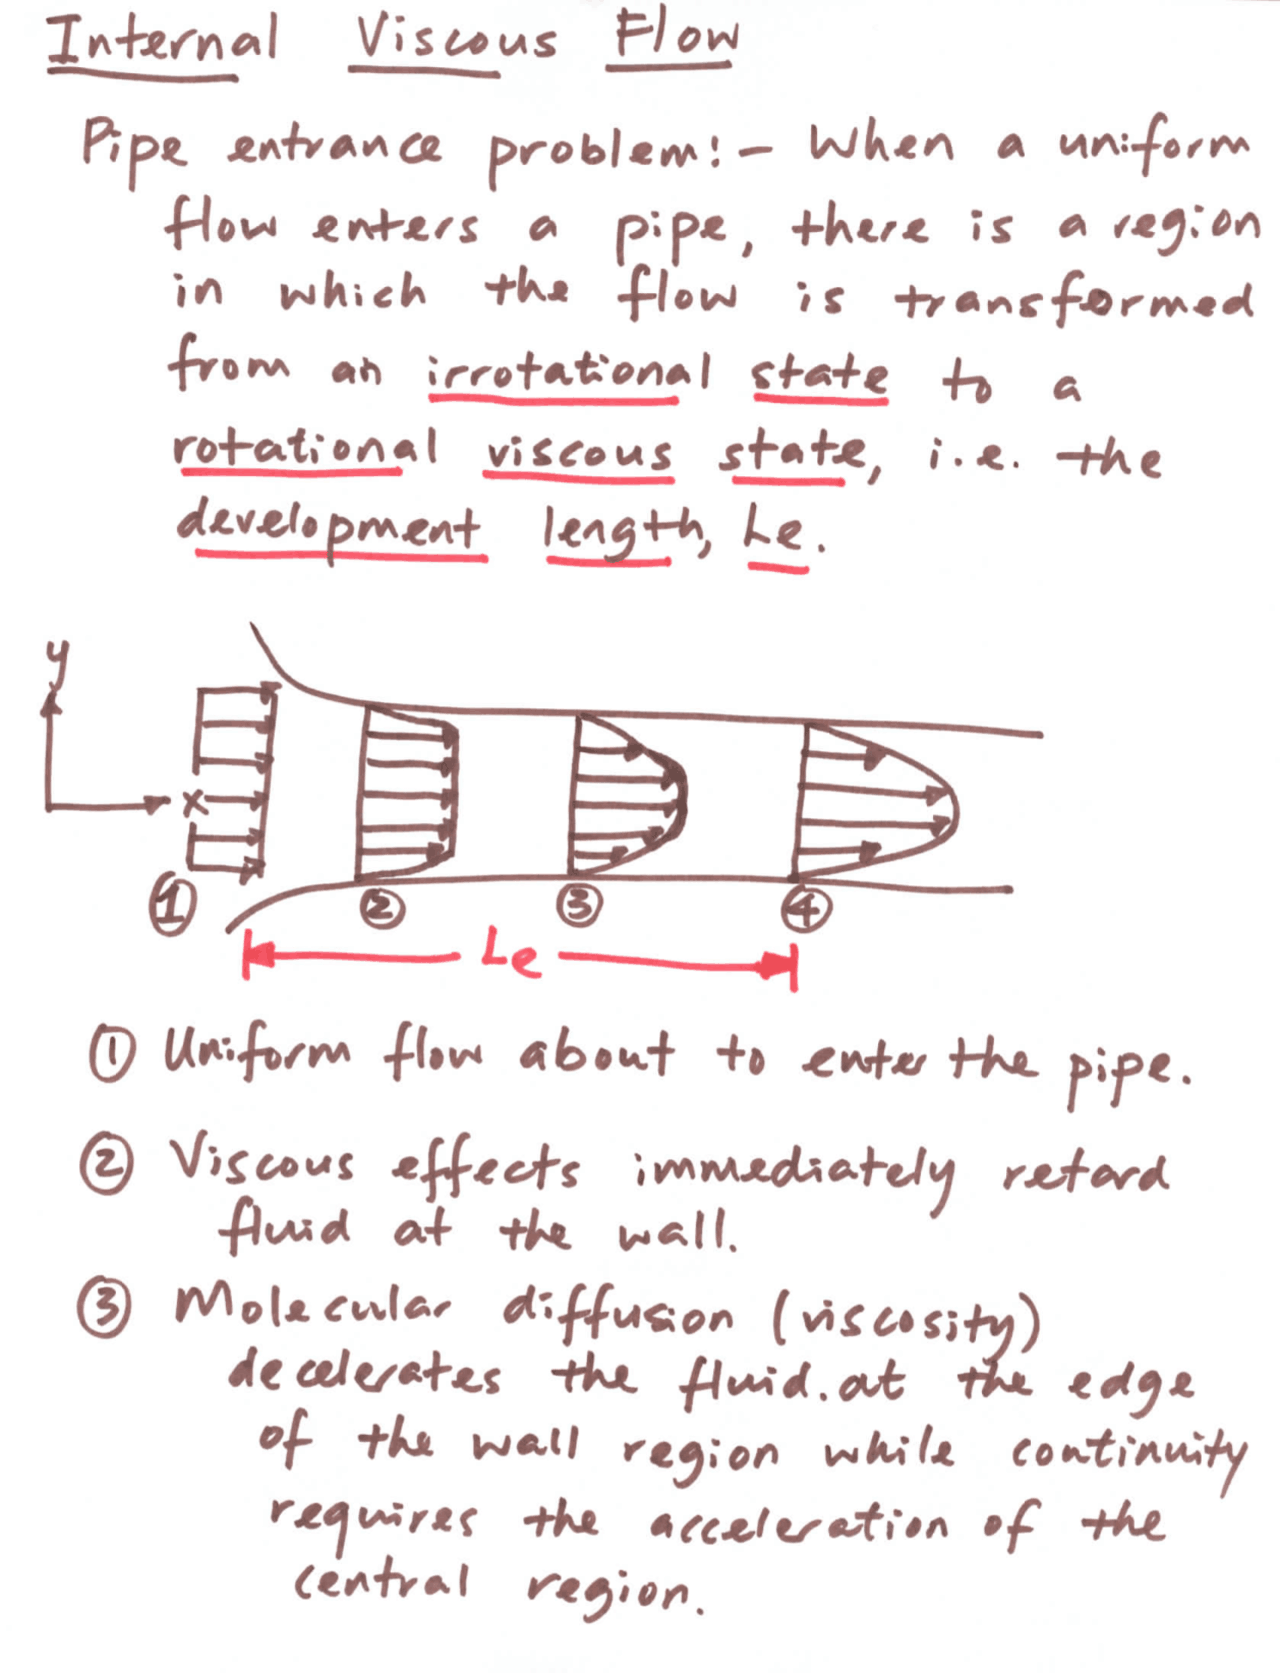 Internal Viscous Flow
Pipe entrance problem:- When a uniform
flow enters a pipe, there is a region
in which the flow is transformed
from an irrotational state to a
rotational viscous state, i.e. the
development length, Le.
y
x
① ② ③ ④
Le
① Uniform flow about to enter the pipe.
② Viscous effects immediately retard
fluid at the wall.
③ Molecular diffusion (viscosity)
decelerates the fluid at the edge
of the wall region while continuity
requires the acceleration of the
central region.